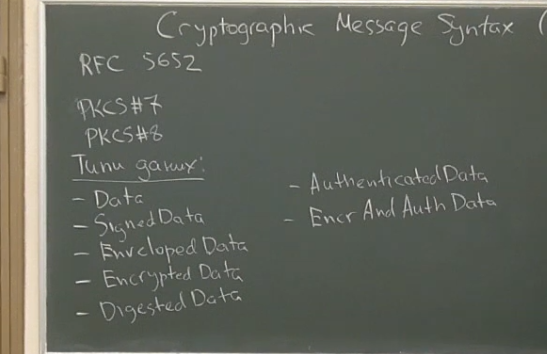 Cryptographic Message Syntax (
RFC 5652
PKCS#7
PKCS#8
Типи даних:
- Data
- SignedData
- Enveloped Data
- Encrypted Data
- Digested Data
- AuthenticatedData
- Encr And Auth Data